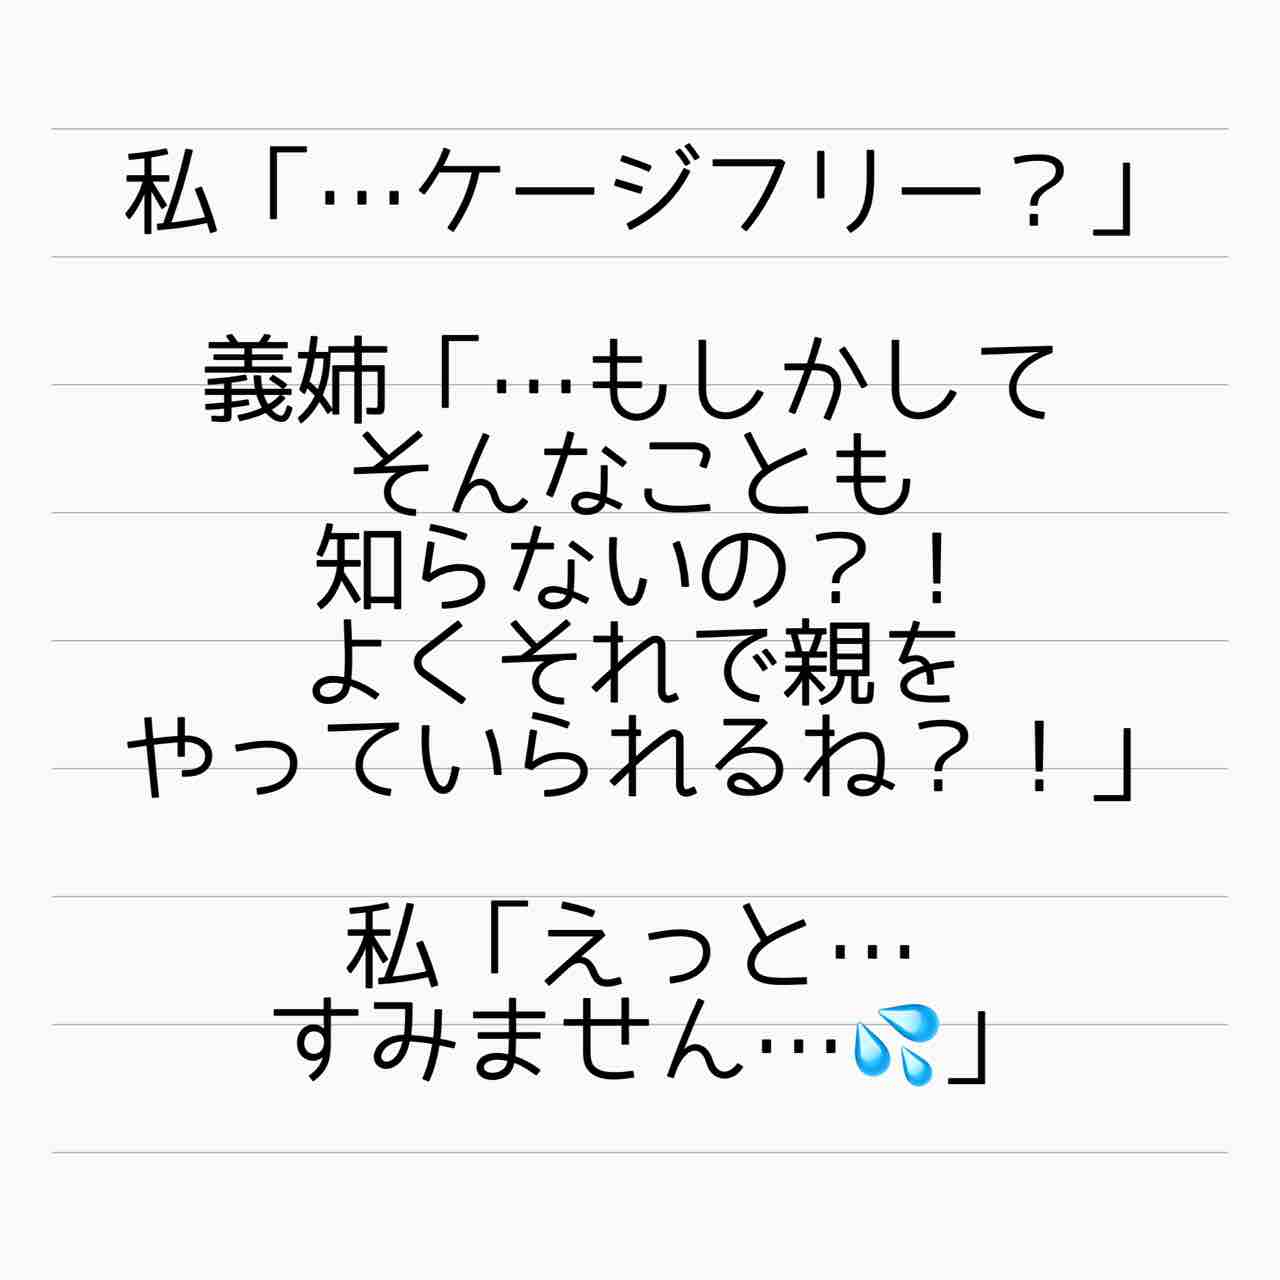 私「…ケージフリー？」
義姉「…もしかして
そんなことも
知らないの？！
よくそれで親を
やっていられるね？！」
私「えっと…
すみません…💦」